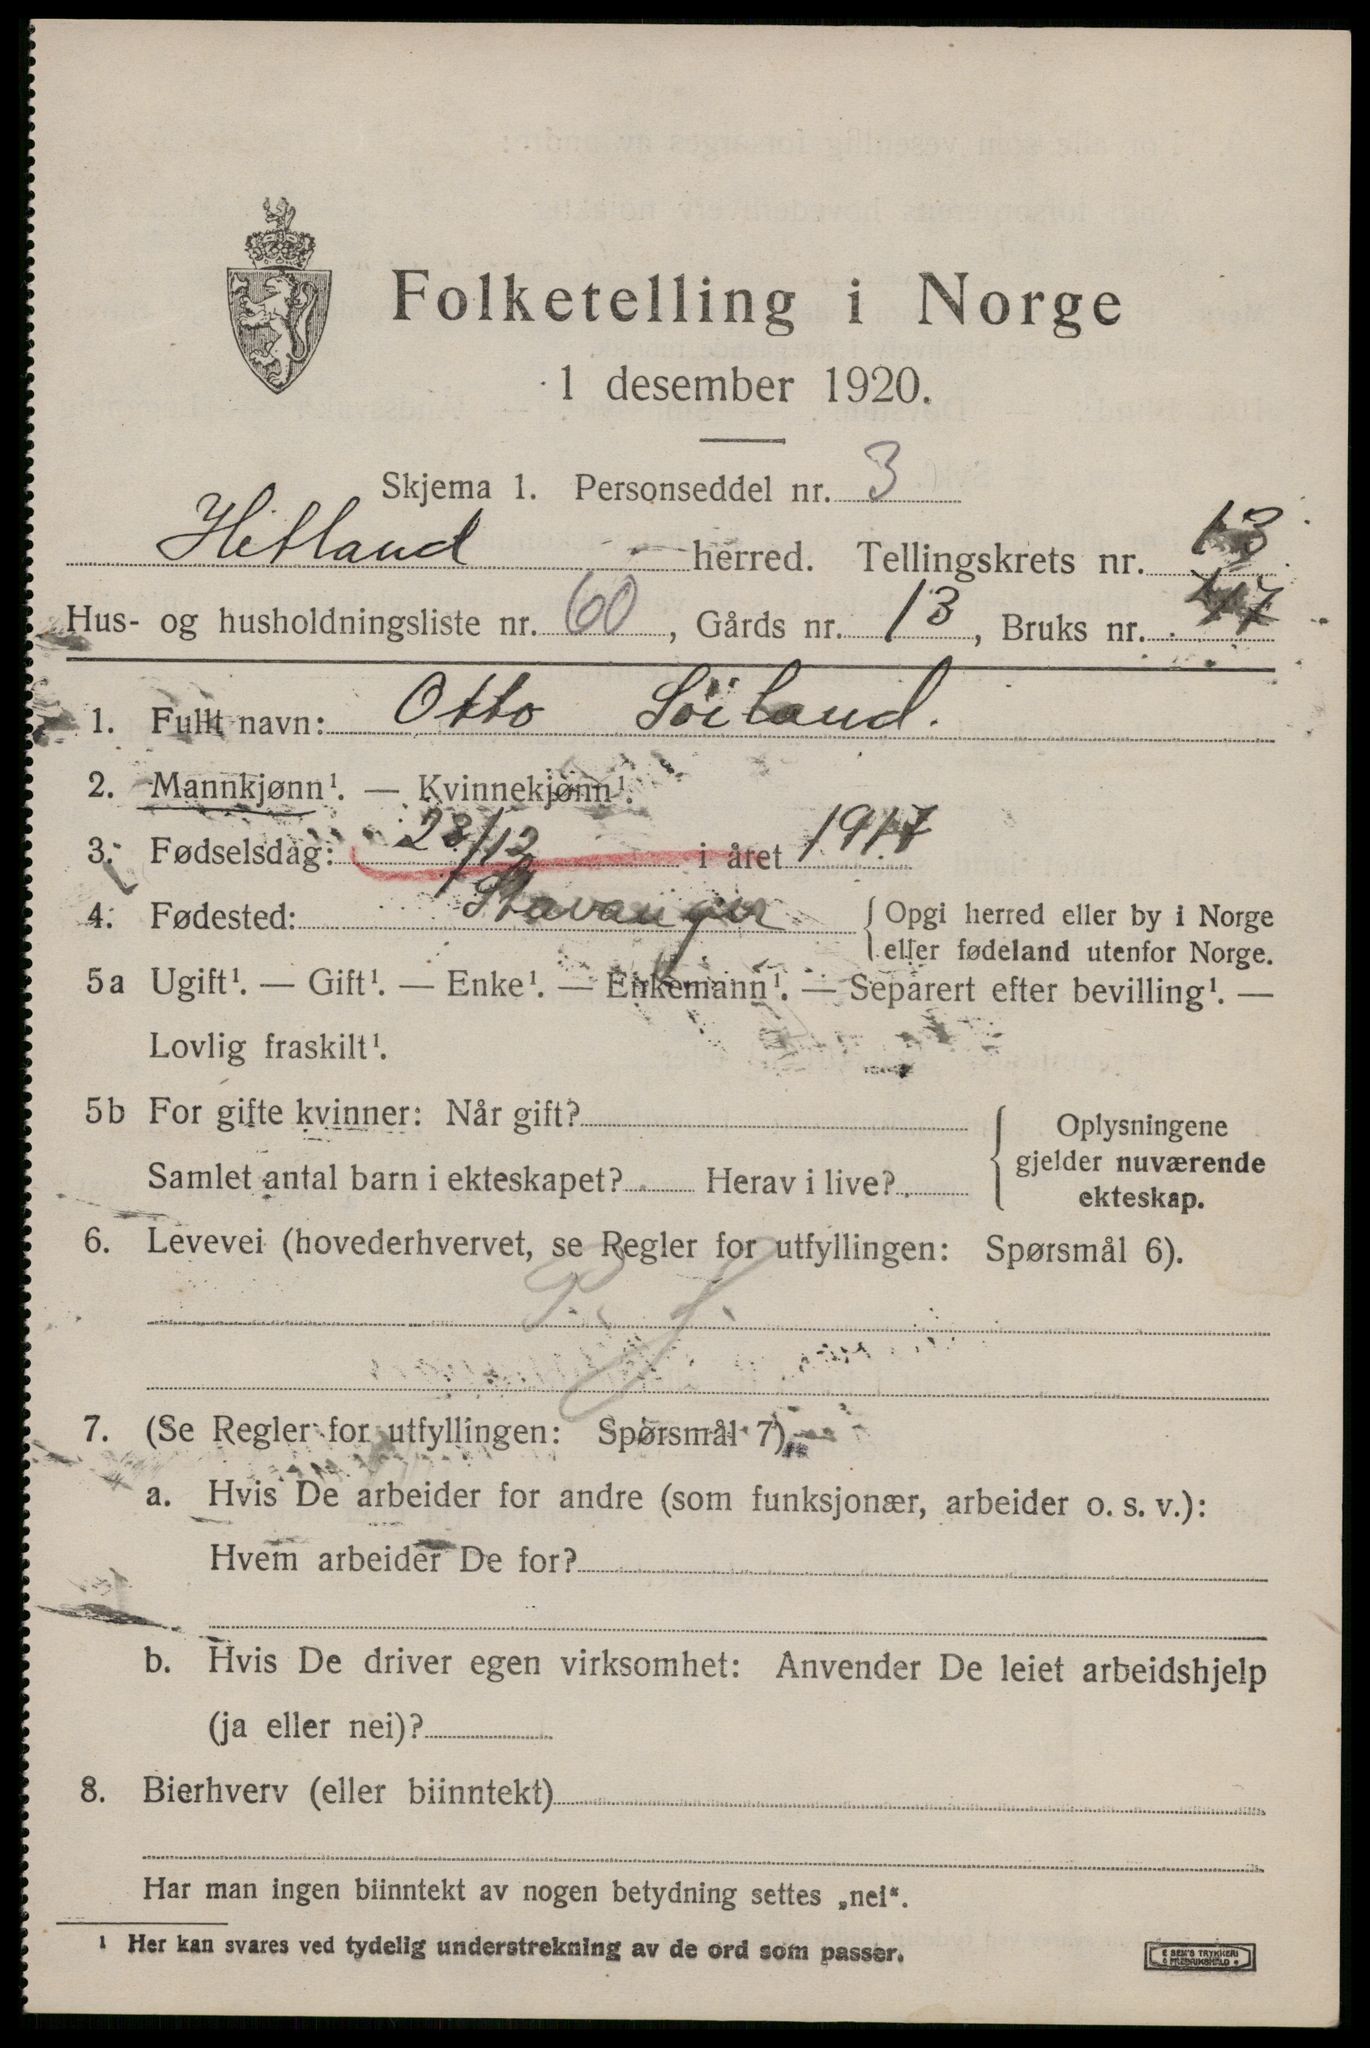 Folketelling i Norge
1 desember 1920.
Skjema 1. Personseddel nr. 3
Hetland herred. Tellingskrets nr. 13
Hus- og husholdningsliste nr. 60, Gårds nr. 13, Bruks nr.
1. Fullt navn: Otto Söiland.
2. Mannkjønn¹. — Kvinnekjønn¹.
3. Fødselsdag: 23/12 i året 1917
4. Fødested: Stavanger { Opgi herred eller by i Norge
eller fødeland utenfor Norge.
5a Ugift¹. — Gift¹. — Enke¹. — Enkemann¹. — Separert efter bevilling¹. —
Lovlig fraskilt¹.
5b For gifte kvinner: Når gift?
Samlet antal barn i ekteskapet? Herav i live?
{ Oplysningene
gjelder nuværende
ekteskap.
6. Levevei (hovederhvervet, se Regler for utfyllingen: Spørsmål 6).
7. (Se Regler for utfyllingen: Spørsmål 7)
a. Hvis De arbeider for andre (som funksjonær, arbeider o. s. v.):
Hvem arbeider De for?
b. Hvis De driver egen virksomhet: Anvender De leiet arbeidshjelp
(ja eller nei)?
8. Bierhverv (eller biinntekt)
Har man ingen biinntekt av nogen betydning settes „nei“.
¹ Her kan svares ved tydelig understrekning av de ord som passer.
E SEM'S TRYKKERI
FREDRIKSHALD